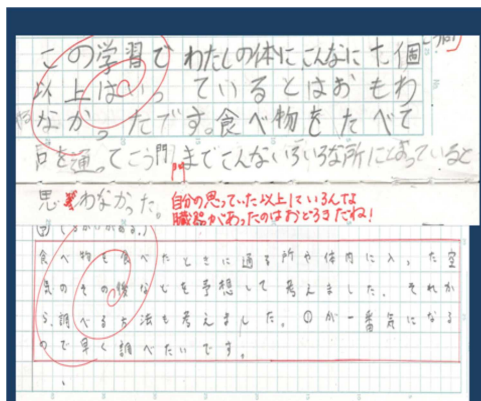 この学習でわたしの体にこんなに十個
以上はいっているとはおもわ
なかったです。食べ物をたべて
口を通ってこう門までこんないろいろな所にとおっていると
門
思わなかった。
自分の思っていた以上にいろんな
臓器があったのはおどろきだね!
食べ物を食べたときに通る所や体内に入った空
気のその後などを予想して考えました。それか
ら、調べる方法も考えました。①が一番気になる
ので早く調べたいです。